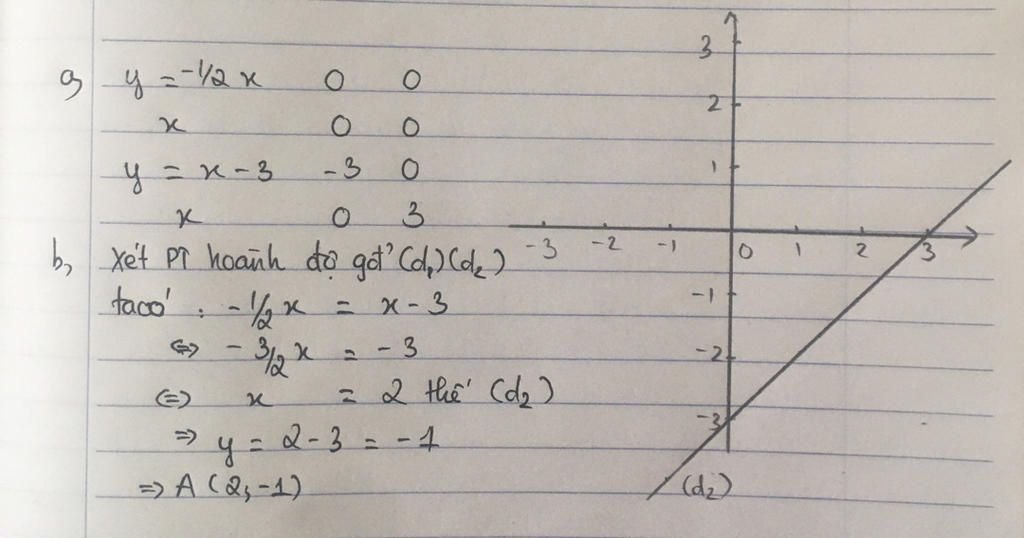 a) y = -1/2 x 0 0
x 0 0
y = x - 3 -3 0
x 0 3
b, Xét PT hoành độ gđ' (d₁)(d₂)
ta có : -1/2 x = x - 3
⇔ -3/2 x = -3
⇔ x = 2 thế (d₂)
⇒ y = 2 - 3 = -1
⇒ A (2, -1)
3
2
1
-3 -2 -1 0 1 2 3
-1
-2
-3
(d₂)